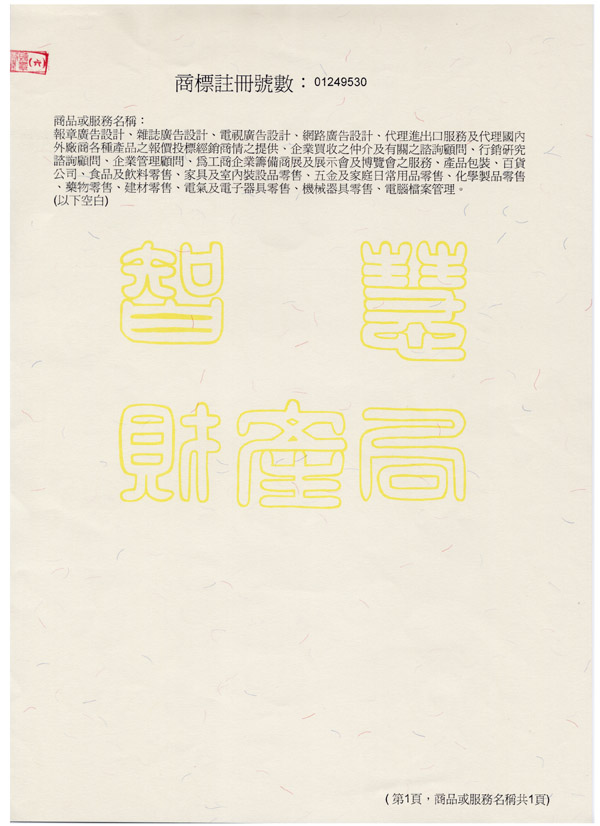 (六)
商標註冊號數：01249530
商品或服務名稱：
報章廣告設計、雜誌廣告設計、電視廣告設計、網路廣告設計、代理進出口服務及代理國內
外廠商各種產品之報價投標經銷商情之提供、企業買收之仲介及有關之諮詢顧問、行銷研究
諮詢顧問、企業管理顧問、為工商企業籌備商展及展示會及博覽會之服務、產品包裝、百貨
公司、食品及飲料零售、家具及室內裝設品零售、五金及家庭日常用品零售、化學製品零售
、藥物零售、建材零售、電氣及電子器具零售、機械器具零售、電腦檔案管理。
(以下空白)
智慧
財產局
( 第1頁，商品或服務名稱共1頁)